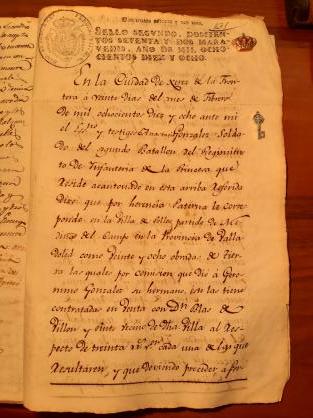 SELLO SEGUNDO, DOSCIEN-
TOS SETENTA Y DOS MARA-
VEDIS, AÑO DE MIL OCHO-
CIENTOS DIEZ Y OCHO.
En la Ciudad de Xerez de la Fron-
tera á veinte dias del mes de Febrero
de mil ochocientos diez y ocho ante mi
el y testigos Gonzalez Solda-
do del segundo Batallon del Regimien-
to de Ynfanteria de la Princesa que
reside acantonado en esta arriba referida
Dixo: que por herencia Paterna le corre-
ponde en la Villa de partido de Me-
dina del Campo en la Provincia de Valla-
dolid como veinte y ocho obradas de tier-
ra las quales por comision que dió á Gero-
nimo Gonzalez su hermano, las tiene
contratada en venta con Dn Blas de
Villon y vecino de dha Villa al res-
pecto de treinta cada una de las que
resultaren, y que deviendo preceder á for-